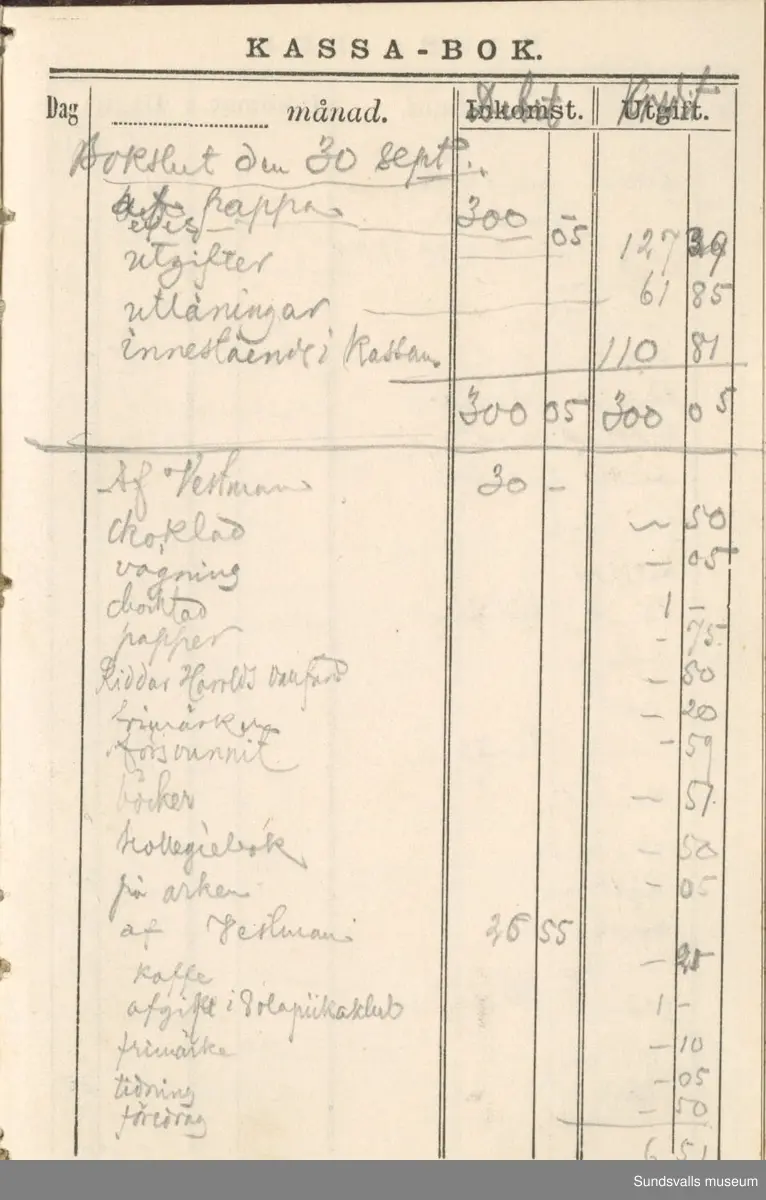 KASSA-BOK.
Dag månad. Inkomst. Utgift.
Debit Kredit
Bokslut den 30 sept.
af pappa 300 –
05
utgifter 127 39
utlåningar 61 85
innestående i Kassan 110 81
300 05 300 05
Af Vestman 30 –
choklad – 50
vägning – 05
choklad 1 –
papper – 75
Riddar Harolds – 50
frimärken – 20
försvunnit – 59
böcker – 51
kollegiebok – 50
på arken – 05
af Vestman 26 55
kaffe – 25
afgift i Volapükaklub 1 –
frimärke – 10
tidning – 05
föredrag – 50
6 51
Sundsvalls museum